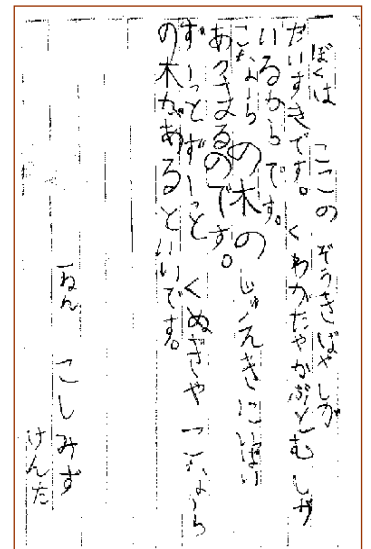 ぼくは ここの ぞうきばやしが
だいすきです。くわがたやかぶとむしが
いるからです。
こならの木の じゅえきにいっぱい
あつまるのです。
ずーっとずーっと くぬぎや こなら
の木があるといいです。
一ねん こしみず
けんた